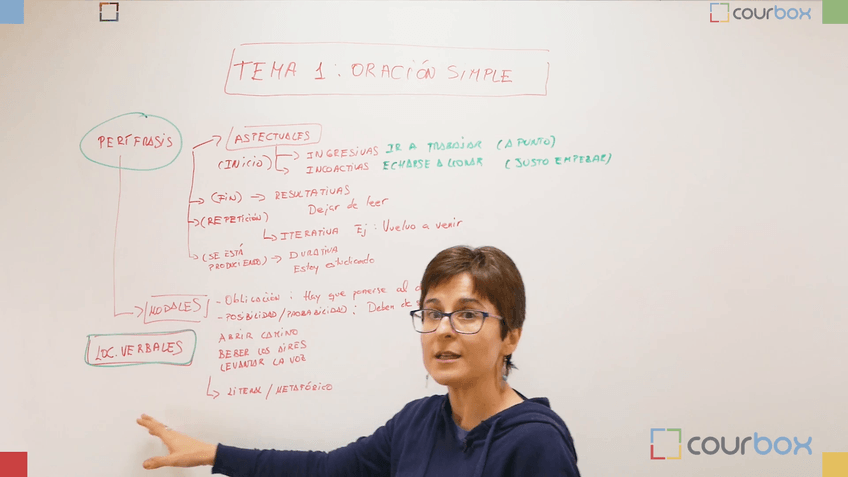 courbox
TEMA 1: ORACIÓN SIMPLE
PERÍFRASIS
ASPECTUALES
(INICIO)
INGRESIVAS IR A TRABAJAR (A PUNTO)
INCOACTIVAS ECHARSE A LLORAR (JUSTO EMPEZAR)
(FIN) → RESULTATIVAS
Dejar de leer
(REPETICIÓN)
ITERATIVA Ej: Vuelvo a venir
(SE ESTÁ PRODUCIENDO) → DURATIVA
Estoy estudiando
MODALES
- Obligación: Hay que ponerse al
- POSIBILIDAD/PROBABILIDAD: Deben de
LOC. VERBALES
ABRIR CAMINO
BEBER LOS AIRES
LEVANTAR LA VOZ
LITERAL / METAFÓRICO
courbox